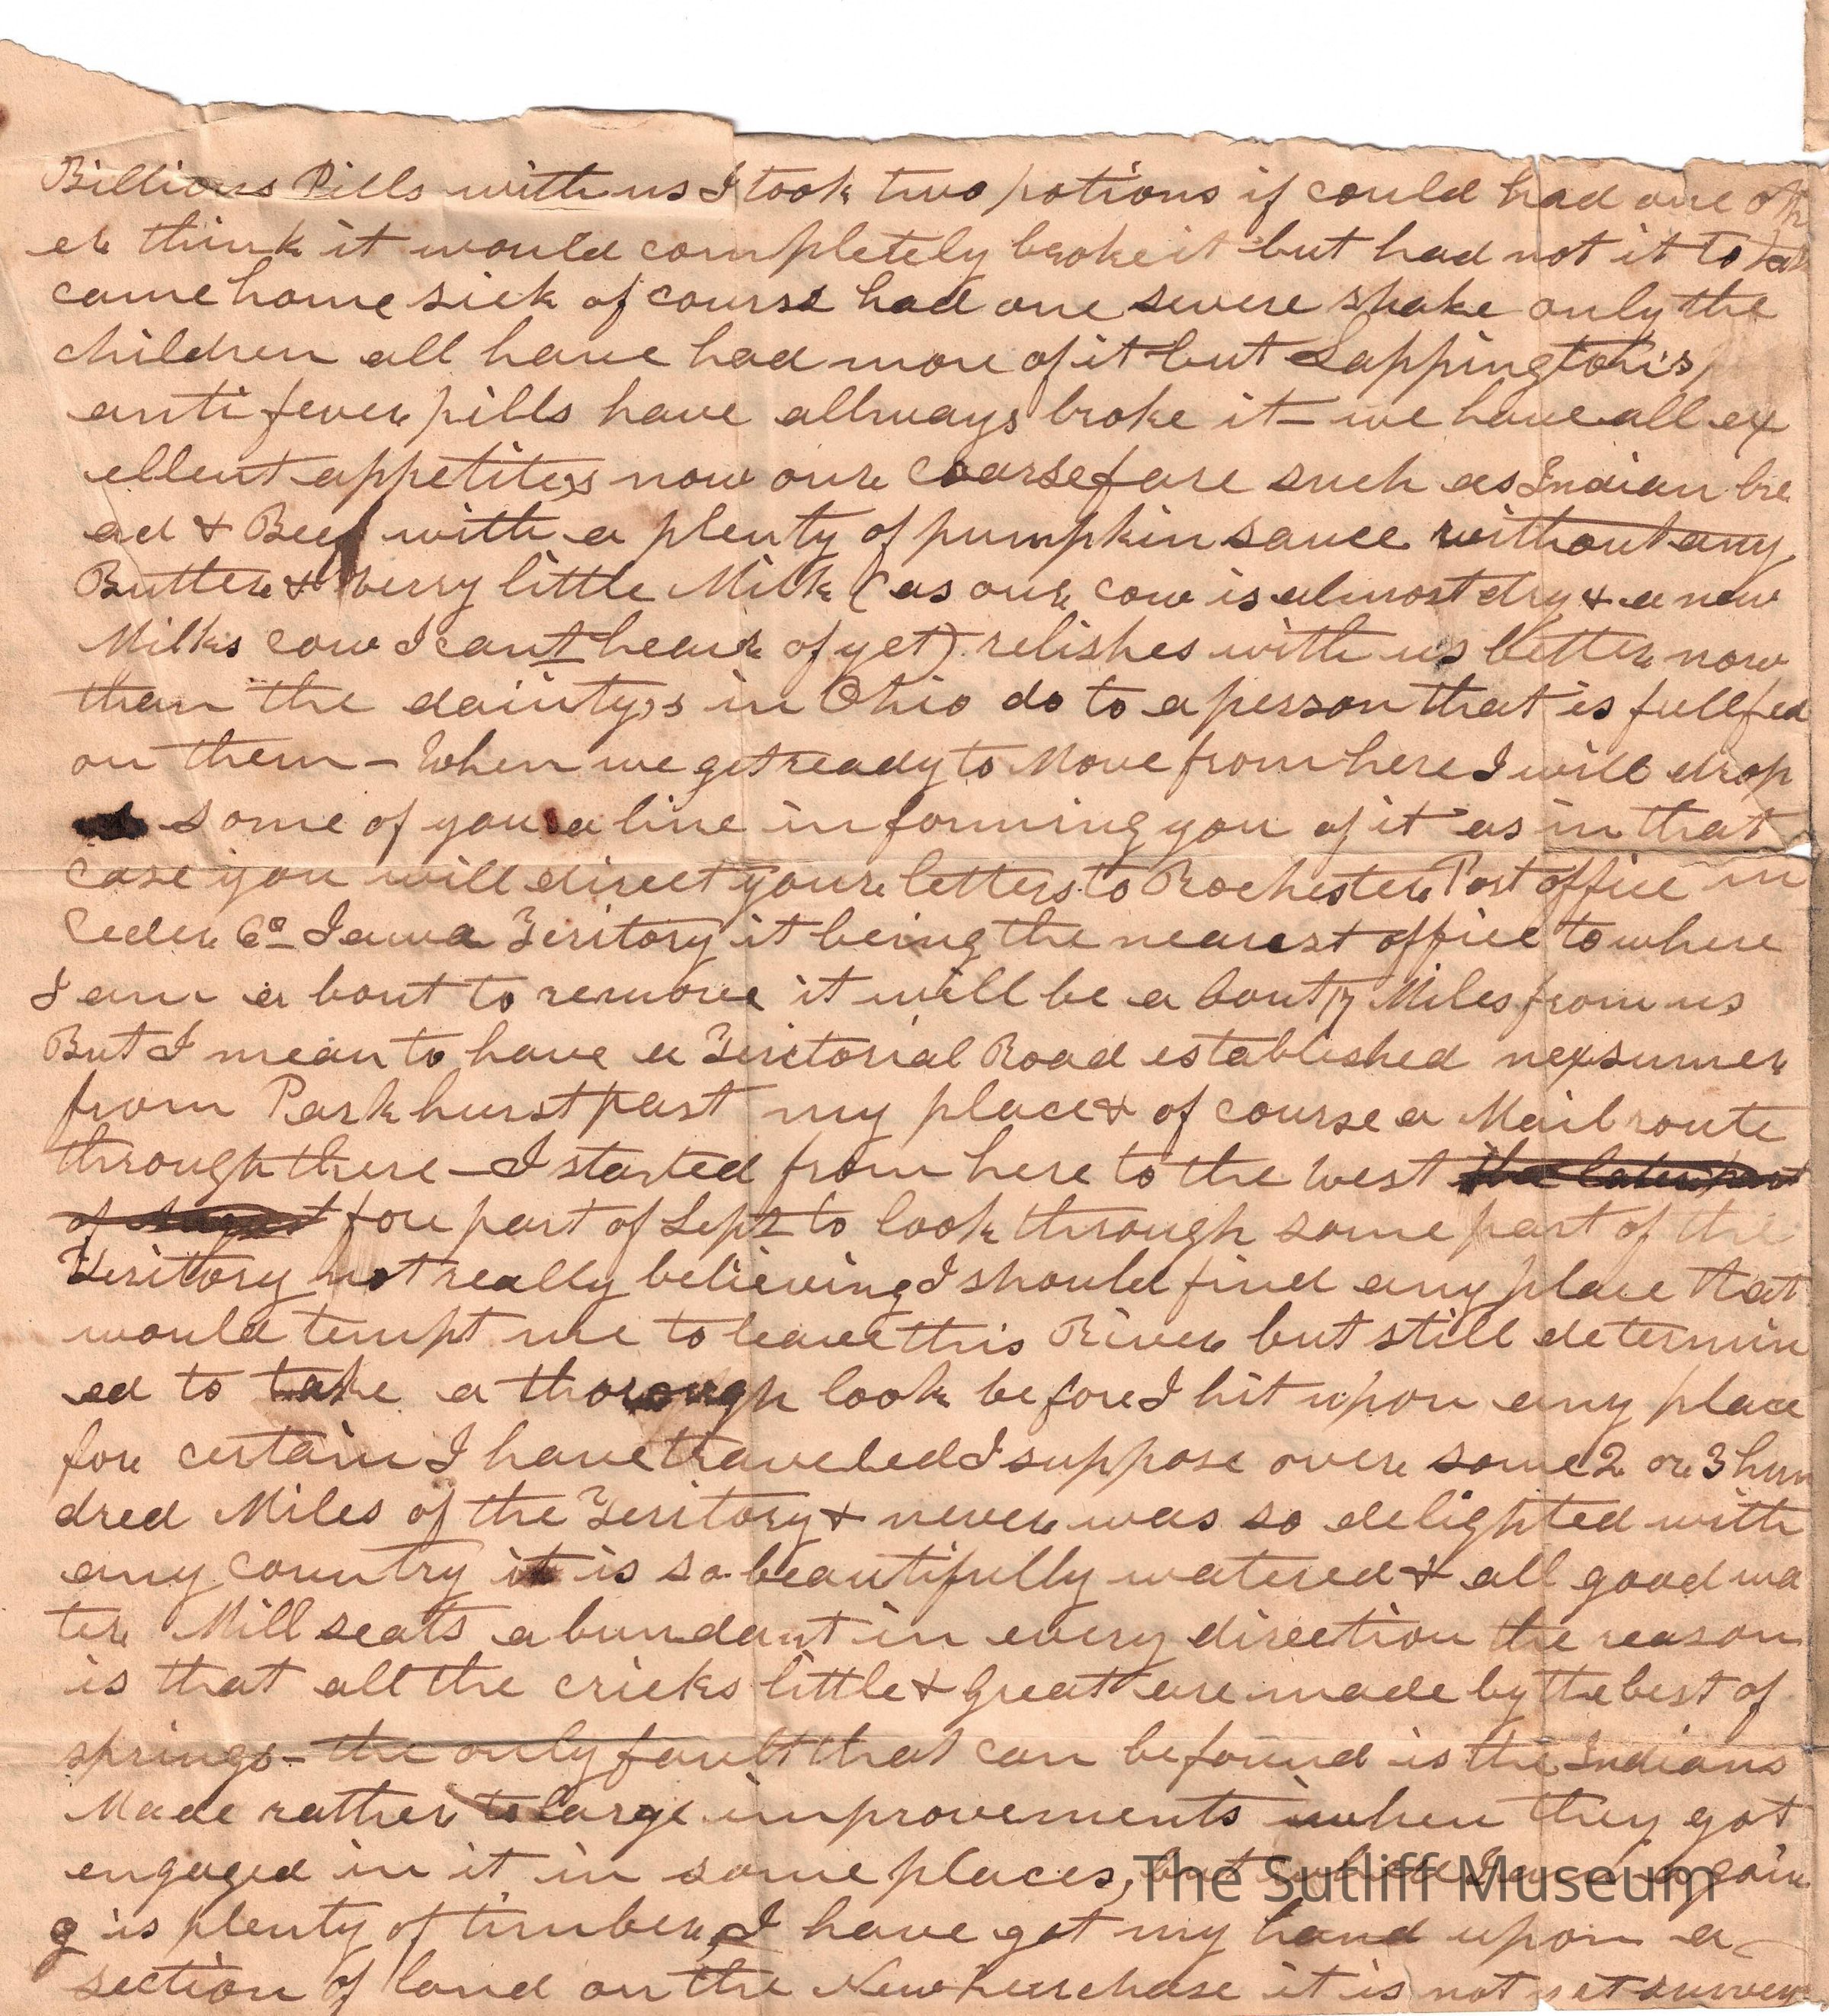 Billious Pills with us I took two potions if could had one oth
er think it would completely broke it but had not it to tak
came home sick of course had one severe shake only the
children all have had more of it but Sappington's
anti fever pills have allways broke it – we have all ex
ellent appetites now our coarse fare such as Indian bre
ad & Beef with a plenty of pumpkin sauce without any
Butter & verry little Milk (as our cow is almost dry & a new
Milks cow I cant hear of yet) relishes with us better now
than the daintys in Ohio do to a person that is full fed
on them – When we get ready to Move from here I will drop
some of you a line informing you of it as in that
case you will direct your letters to Rochester Post office in
Ceder Co Iawa Teritory it being the nearest office to where
I am a bout to remove it will be a bout 17 Miles from us
But I mean to have a Teritorial Road established nex sumer
from Parkhurst past my place & of course a Mail route
through there – I started from here to the West the later part
of August fore part of Sept to look through some part of the
Teritory not really believing I should find any place that
would tempt me to leave this River but still determin
ed to take a thorough look before I hit upon any place
for certain I have traveled I suppose over some 2 or 3 hun
dred Miles of the Teritory & never was so delighted with
any country it is so beautifully watered & all good wa
ter Mill seats a bundant in every direction the reason
is that all the cricks little & great are made by the best of
springs – the only fault that can be found is the Indians
Made rather to large improvements when they got
engaged in it in some places, but where I am a goin
g is plenty of timber, I have got my hand upon a
section of land on the New Purchase it is not yet survey
The Sutliff Museum